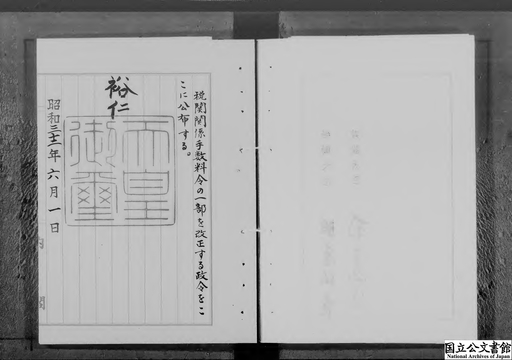 税関関係手数料令の一部を改正する政令をこ
こに公布する。
裕仁
天皇
御璽
昭和三十三年六月一日
国立公文書館
National Archives of Japan